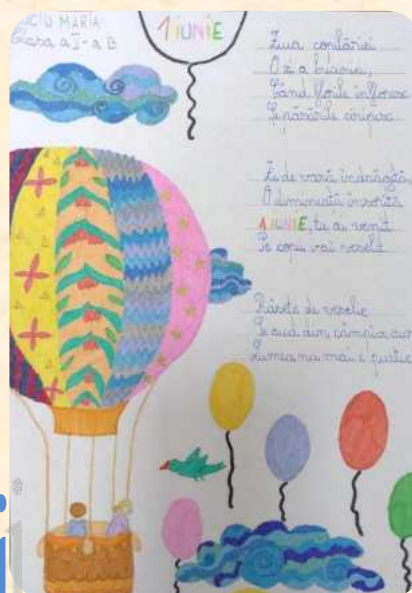 UCIU MARIA
Clasa a I-a B
1 IUNIE
Ziua copilăriei
O zi a bucuriei,
Când florile înfloresc
Și păsările ciripesc
Zi de vară îndrăgită
O dimineață însorită
1 IUNIE, tu ai venit
Pe copii i-ai veselit
Râsete de veselie
Se aud din câmpia
Lumea nu mai e pustie